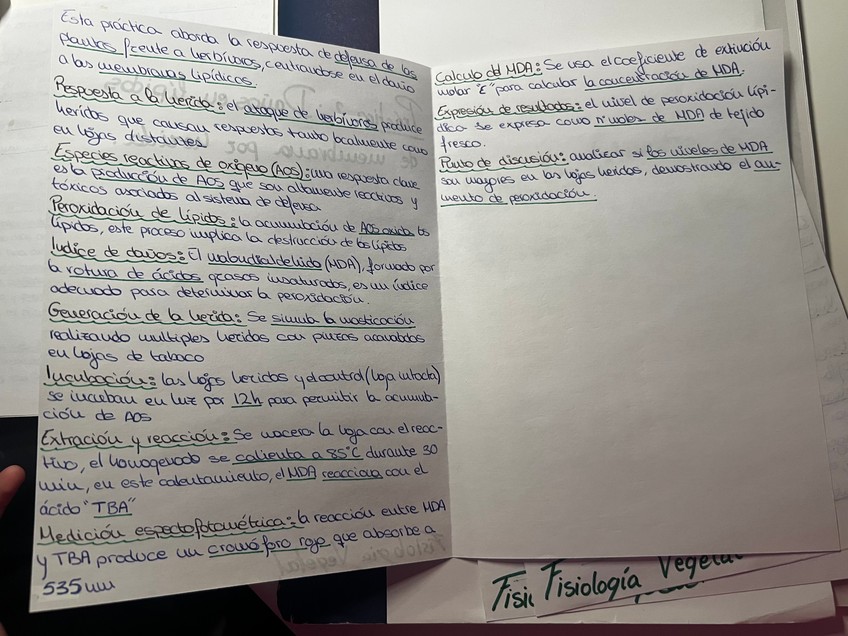 Esta práctica aborda la respuesta de defensa de las
plantas frente a herbívoros, centrandose en el daño
a las membranas lipídicas.
Respuesta a la herida: el ataque de herbívoros produce
heridas que causan respuestas tanto localmente como
en hojas distantes
Especies reactivas de oxígeno (AOS): una respuesta clave
es la producción de AOS que son altamente reactivos y
tóxicos asociados al sistema de defensa
Peroxidación de lípidos: la acumulación de AOS oxida los
lípidos, este proceso implica la destrucción de los lípidos
Indice de daños: El malondialdehido (MDA), formado por
la rotura de ácidos grasos insaturados, es un índice
adecuado para determinar la peroxidación.
Generación de la herida: Se simula la masticación
realizando multiples heridas con pinzas acanaladas
en hojas de tabaco
Incubación: las hojas heridas y el control (hoja intacta)
se incuban en luz por 12h para permitir la acumula-
ción de AOS
Extración y reacción: Se macera la hoja con el reac-
tivo, el homogenado se calienta a 85ºC durante 30
min, en este calentamiento, el MDA reacciona con el
ácido "TBA"
Medición espectofotométrica: la reacción entre MDA
y TBA produce un cromóforo rojo que absorbe a
535nm
Calculo del MDA: Se usa el coeficiente de extinción
molar "ε" para calcular la concentración de MDA.
Expresión de resultados: el nivel de peroxidación lipí-
dica se expresa como nmoles de MDA de tejido
fresco.
Punto de discusión: analizar si los niveles de MDA
son mayores en las hojas heridas, demostrando el au-
mento de peroxidación
Fisi
Fisiología Vegetal